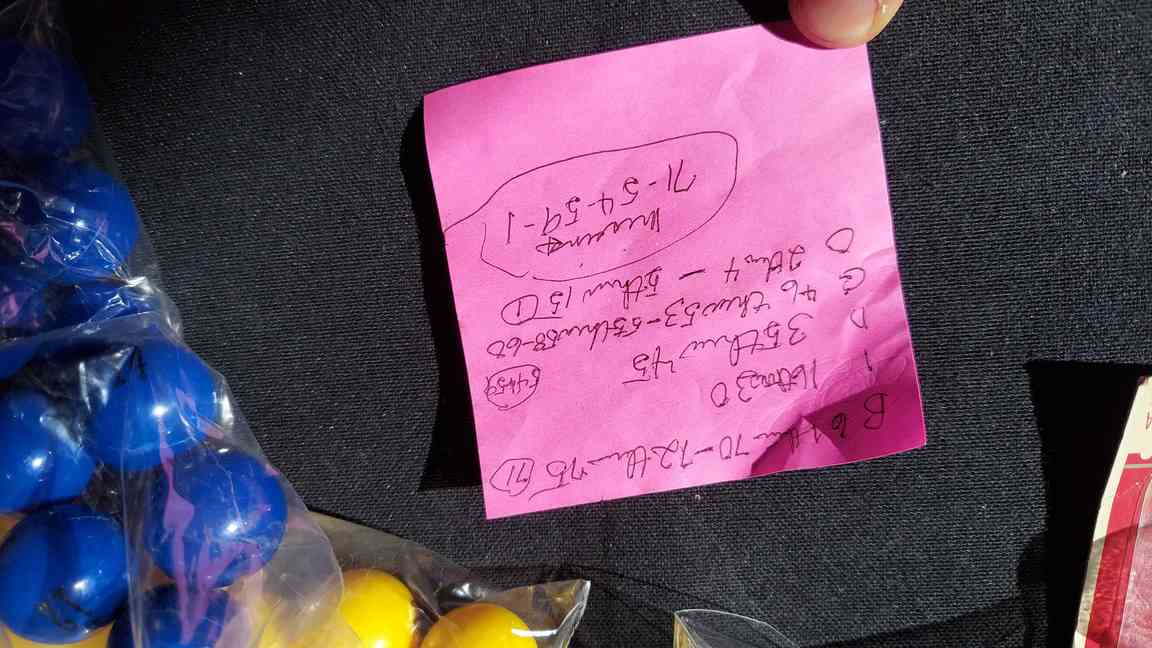 B 61 thru 70-72 thru 75 71
I 16 thru 30
N 35 thru 45 54+59
G 46 thru 53-55 thru 58-60
O 2 thru 4 - 5 thru 15 1
missing
71-54-59-1